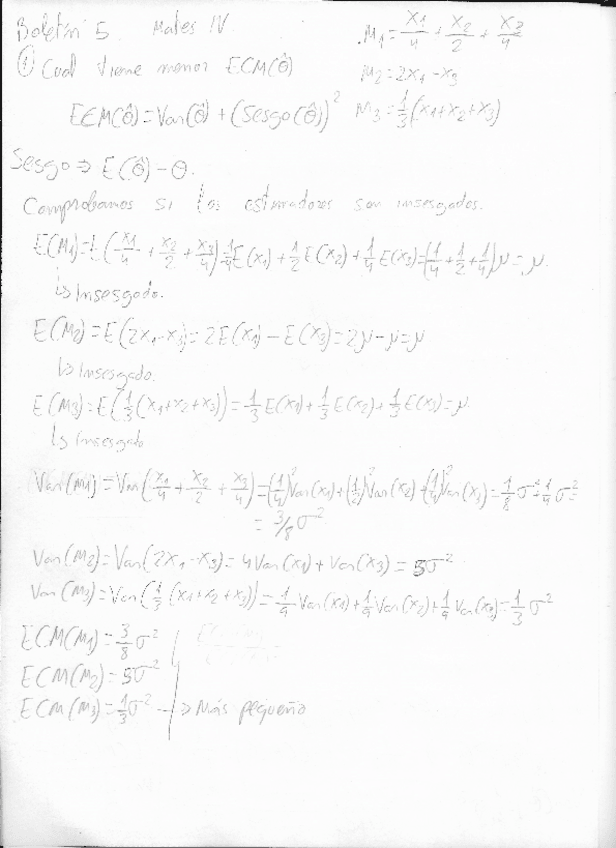 Boletín 5 Mates IV
M₁ = X1/4 + X2/2 + X3/4
① Cual tiene menor ECM(θ̂)
M₂ = 2X1 - X3
ECM(θ̂) = Var(θ̂) + (Sesgo(θ̂))² M₃ = 1/3 (X1+X2+X3)
Sesgo ⇒ E(θ̂) - θ.
Comprobamos si los estimadores son insesgados.
E(M1) = E(X1/4 + X2/2 + X3/4) = 1/4 E(X1) + 1/2 E(X2) + 1/4 E(X3) = (1/4 + 1/2 + 1/4) μ = μ.
↳ Insesgado.
E(M2) = E(2X1 - X3) = 2E(X1) - E(X3) = 2μ - μ = μ
↳ Insesgado.
E(M3) = E(1/3 (X1+X2+X3)) = 1/3 E(X1) + 1/3 E(X2) + 1/3 E(X3) = μ.
↳ Insesgado
Var(M1) = Var(X1/4 + X2/2 + X3/4) = (1/4)² Var(X1) + (1/2)² Var(X2) + (1/4)² Var(X3) = 1/8 σ² + 1/4 σ² =
= 3/8 σ²
Var(M2) = Var(2X1 - X3) = 4Var(X1) + Var(X3) = 5σ²
Var(M3) = Var(1/3 (X1+X2+X3)) = 1/9 Var(X1) + 1/9 Var(X2) + 1/9 Var(X3) = 1/3 σ²
ECM(M1) = 3/8 σ²
ECM(M2) = 5σ²
ECM(M3) = 1/3 σ² → Más pequeño